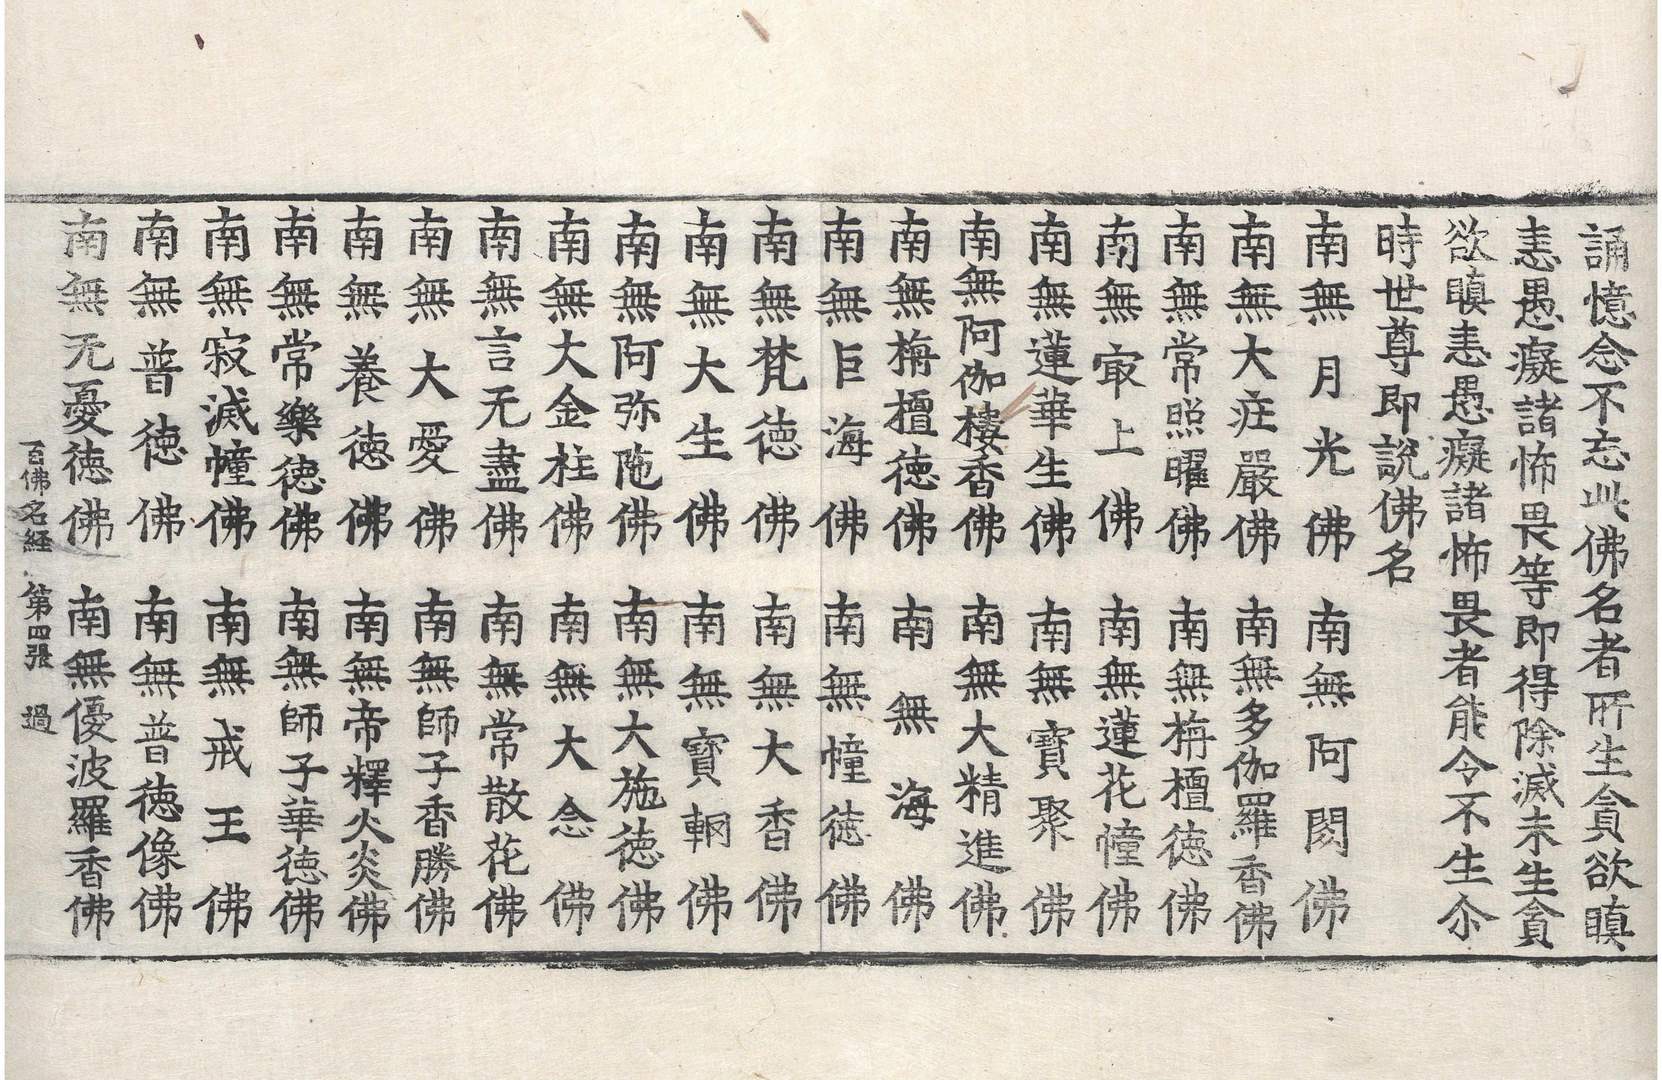 誦憶念不忘此佛名者所生貪欲瞋
恚愚癡諸怖畏等即得除滅未生貪
欲瞋恚愚癡諸怖畏者能令不生尒
時世尊即說佛名
南無月光佛 南無阿閦佛
南無大庄嚴佛 南無多伽羅香佛
南無常照曜佛 南無栴檀德佛
南無㝡上佛 南無蓮花幢佛
南無蓮華生佛 南無寶聚佛
南無阿伽樓香佛 南無大精進佛
南無栴檀德佛 南無海佛
南無巨海佛 南無幢德佛
南無梵德佛 南無大香佛
南無大生佛 南無寶輞佛
南無阿弥陁佛 南無大施德佛
南無大金柱佛 南無大念佛
南無言无盡佛 南無常散花佛
南無大愛佛 南無師子香勝佛
南無養德佛 南無帝釋火炎佛
南無常樂德佛 南無師子華德佛
南無寂滅幢佛 南無戒王佛
南無普德佛 南無普德像佛
南無无憂德佛 南無優波羅香佛
百佛名経 第四張 過